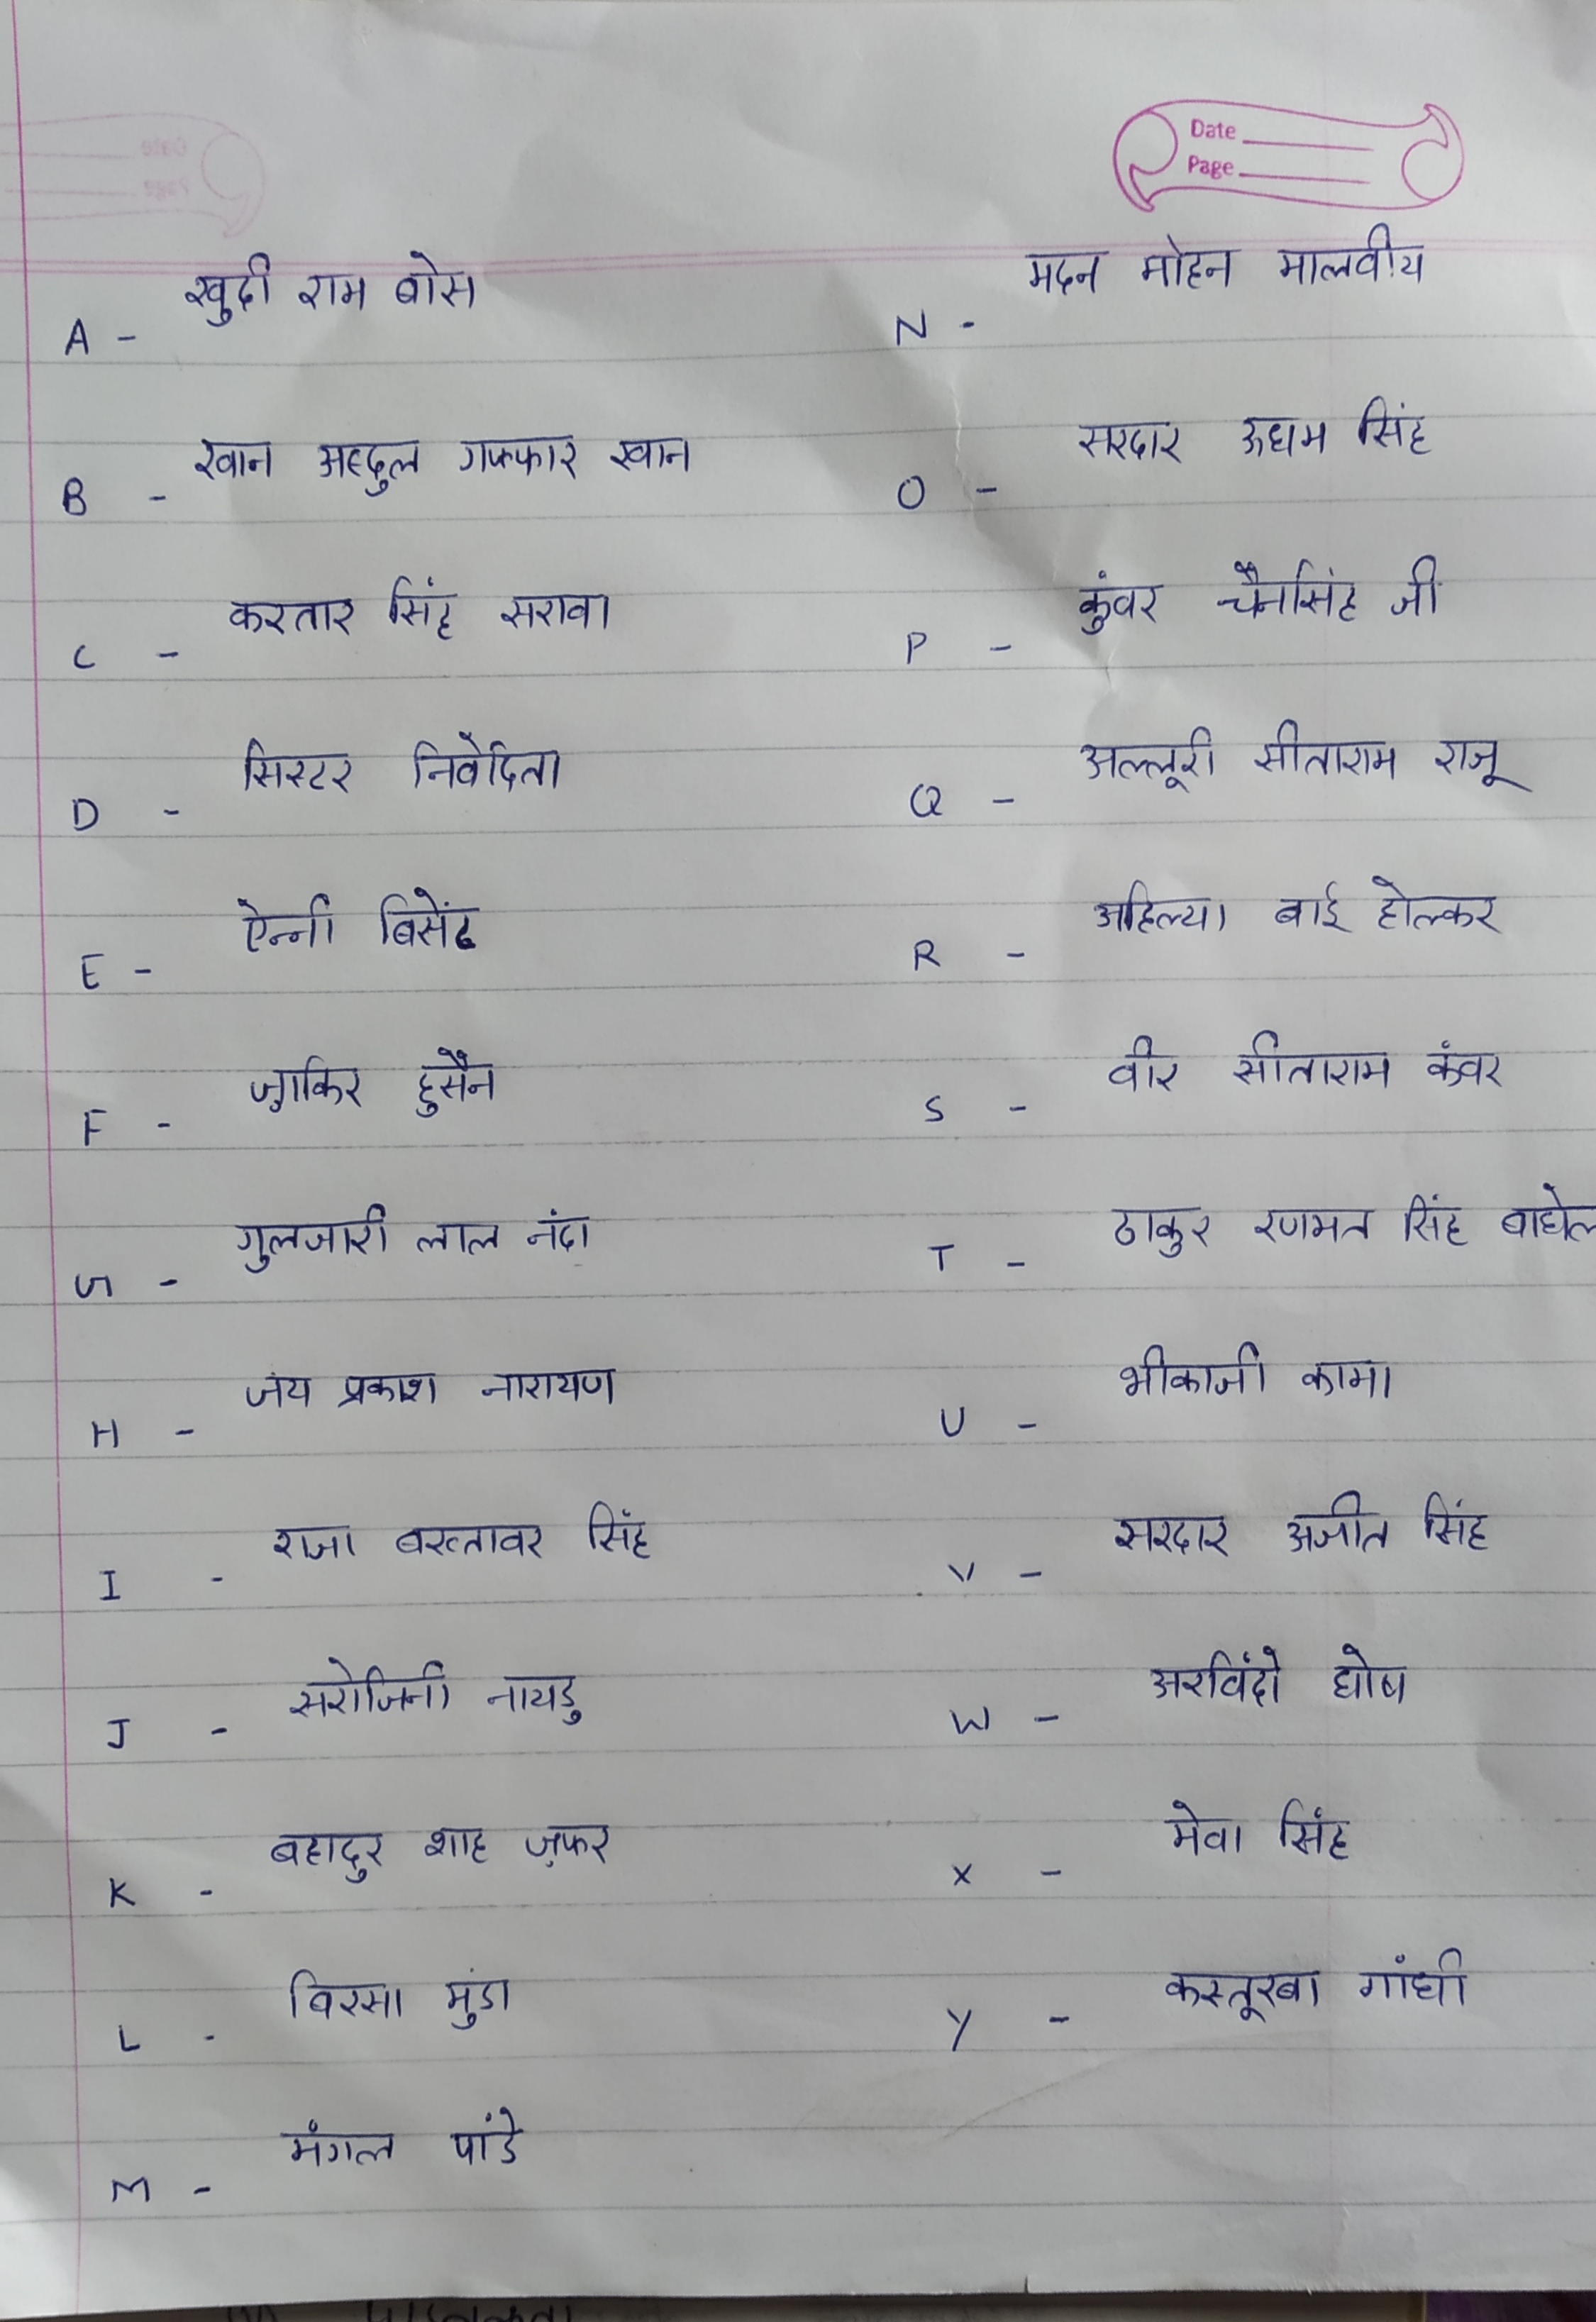 Date
Page
A - खुदी राम बोस
B - खान अब्दुल गफ्फार खान
C - करतार सिंह सरावा
D - सिस्टर निवेदिता
E - ऐन्नी बिसेंट
F - ज़ाकिर हुसैन
G - गुलजारी लाल नंदा
H - जय प्रकाश नारायण
I - राजा बख्तावर सिंह
J - सरोजिनी नायडु
K - बहादुर शाह ज़फर
L - बिरसा मुंडा
M - मंगल पांडे
N - मदन मोहन मालवीय
O - सरदार ऊधम सिंह
P - कुंवर चैनसिंह जी
Q - अल्लूरी सीताराम राजू
R - अहिल्या बाई होल्कर
S - वीर सीताराम कंवर
T - ठाकुर रणमत सिंह बाघेल
U - भीकाजी कामा
V - सरदार अजीत सिंह
W - अरविंदो घोष
X - मेवा सिंह
Y - कस्तूरबा गांधी